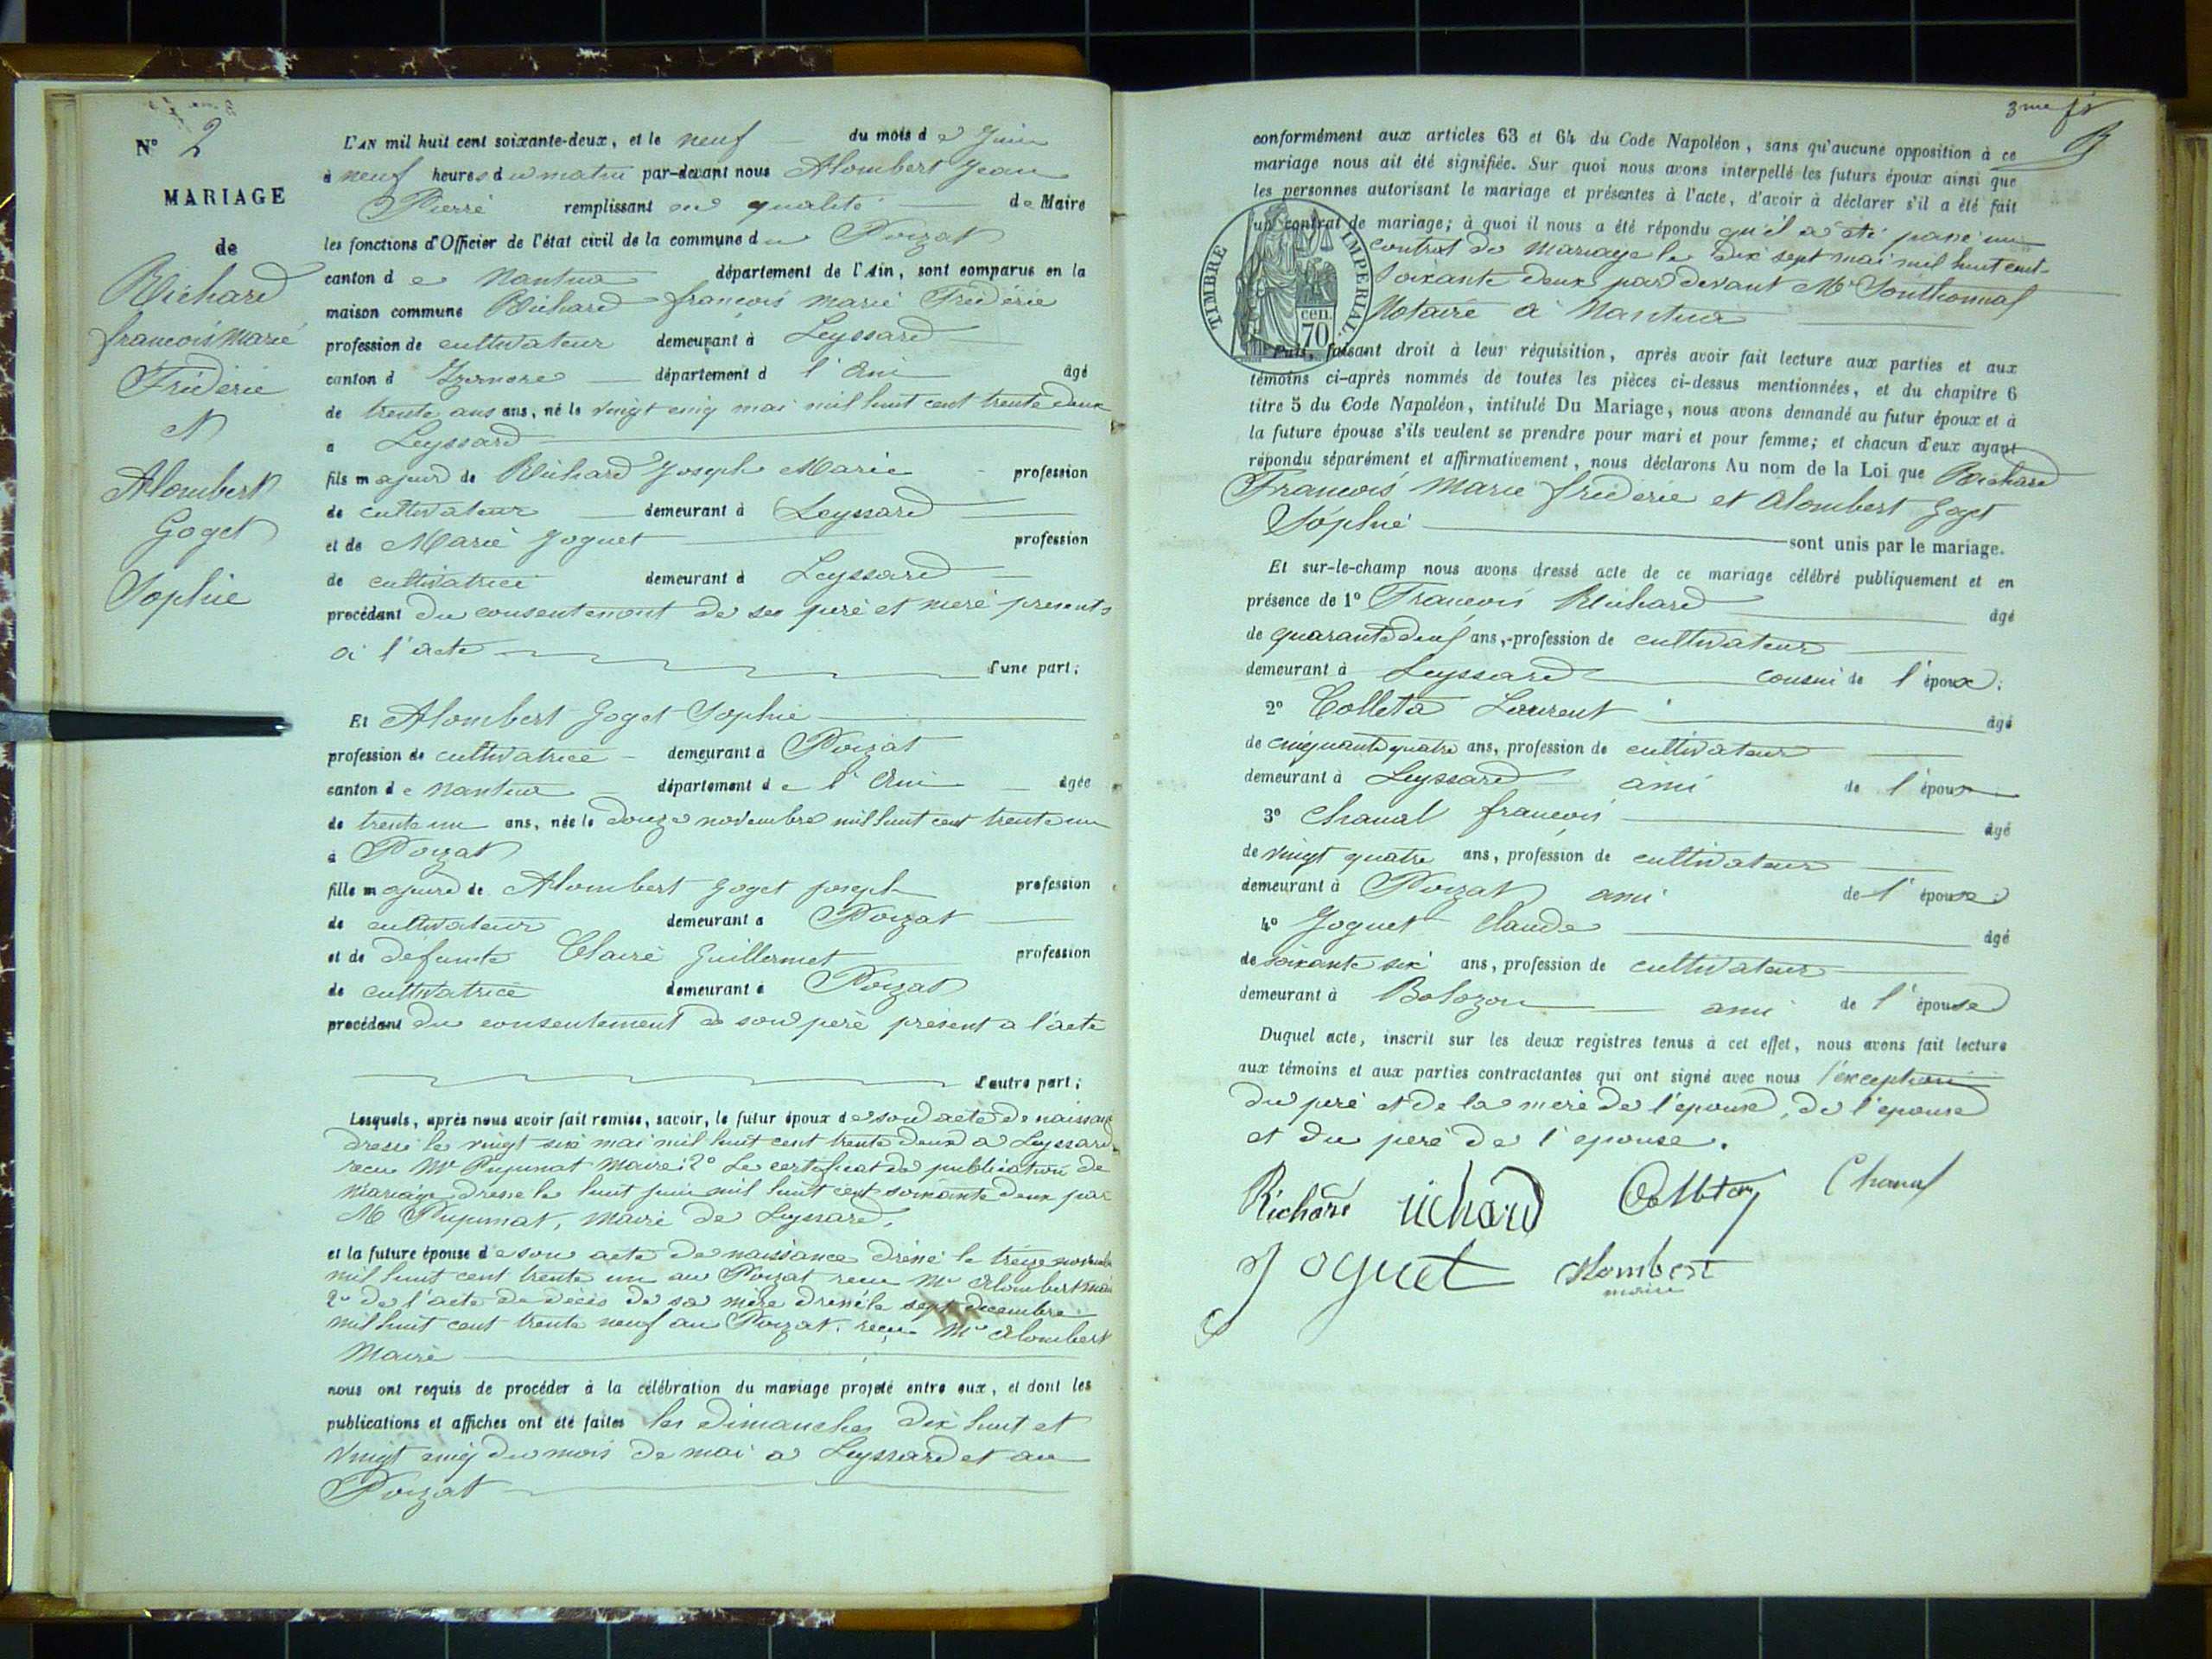 N° 2
MARIAGE
de
Richard
francois Marie
Fréderic
et
Alombert
Goget
Sophie
L'AN mil huit cent soixante-deux, et le neuf du mois de Juin
à neuf heures du matin par-devant nous Alombert Jean
Pierre remplissant en qualité de Maire
les fonctions d'Officier de l'état civil de la commune du Poizat
canton de Nantua département de l'Ain, sont comparus en la
maison commune Richard francois Marie Fréderic
profession de cultivateur demeurant à Leyssard
canton d Izernore département d l'Ain âgé
de trente ans ans, né le vingt cinq mai mil huit cent trente deux
a Leyssard
fils majeur de Richard Joseph Marie profession
de cultivateur demeurant à Leyssard
et de Marie Joguet profession
de cultivatrice demeurant à Leyssard
procédant du consentement de ses peré et meré presents
à l'acte d'une part;
Et Alombert Goget Sophie
profession de cultivatrice demeurant à Poizat
canton de Nantua département de l'Ain âgée
de trente un ans, née le douze novembre mil huit cent trente un
à Poizat
fille majeure de Alombert Goget joseph profession
de cultivateur demeurant à Poizat
et de défunte Claire Guillermet profession
de cultivatrice demeurant à Poizat
procédant du consentement de son peré présent a l'acte
d'autre part;
Lesquels, après nous avoir fait remise, savoir, le futur époux de son acte de naissance
dressé le vingt six mai mil huit cent trente deux a Leyssard
recu Mr Pupunat Maire; 2° Le certificat de publication de
Mariage dressé le huit juin mil huit cent soixante deux par
M Pupunat, Maire de Leyssard.
et la future épouse de son acte de naissance dressé le treize novembre
mil huit cent trente un au Poizat recu Mr Alombert mai
2° de l'acte de décès de sa mère dressé le sept decembre
mil huit cent trente neuf au Poizat. reçu Mr Alombert
Maire
nous ont requis de procéder à la célébration du mariage projeté entre eux, et dont les
publications et affiches ont été faites les dimanches dix huit et
vingt cinq du mois de mai a Leyssard et au
Poizat
3me
conformément aux articles 63 et 64 du Code Napoléon, sans qu'aucune opposition à ce
mariage nous ait été signifiée. Sur quoi nous avons interpellé les futurs époux ainsi que
les personnes autorisant le mariage et présentes à l'acte, d'avoir à déclarer s'il a été fait
un contrat de mariage; à quoi il nous a été répondu qu'il a été passé un
contrat de Mariage le dix sept mai mil huit cent
soixante deux par devant Mr Southonnaf
Notaire à Nantua
TIMBRE IMPERIAL.
70 cen.
Puis, faisant droit à leur réquisition, après avoir fait lecture aux parties et aux
témoins ci-après nommés de toutes les pièces ci-dessus mentionnées, et du chapitre 6
titre 5 du Code Napoléon, intitulé Du Mariage, nous avons demandé au futur époux et à
la future épouse s'ils veulent se prendre pour mari et pour femme; et chacun d'eux ayant
répondu séparément et affirmativement, nous déclarons Au nom de la Loi que Richard
Francois Marie fréderic et Alombert Goget
Sophie sont unis par le mariage.
Et sur-le-champ nous avons dressé acte de ce mariage célébré publiquement et en
présence de 1° Francois Richard âgé
de quarante deux ans, profession de cultivateur
demeurant à Leyssard cousin de l'époux;
2° Colleta Laurent âgé
de cinquante quatre ans, profession de cultivateur
demeurant à Leyssard ami de l'époux
3° Chanal francois âgé
de vingt quatre ans, profession de cultivateur
demeurant à Poizat ami de l'épouse;
4° Joguet Claude âgé
de soixante six ans, profession de cultivateur
demeurant à Bolozon ami de l'épouse
Duquel acte, inscrit sur les deux registres tenus à cet effet, nous avons fait lecture
aux témoins et aux parties contractantes qui ont signé avec nous l'exception
du peré et de la meré de l'époux, de l'epouse
et du peré de l'epouse.
Richard richard Colleta Chanal
Joguet Alombert
maire